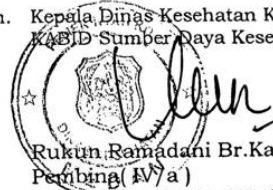 n. Kepala Dinas Kesehatan K
KABID Sumber Daya Kese
Rukun Ramadani Br.Ka
Pembina( IV/ a )